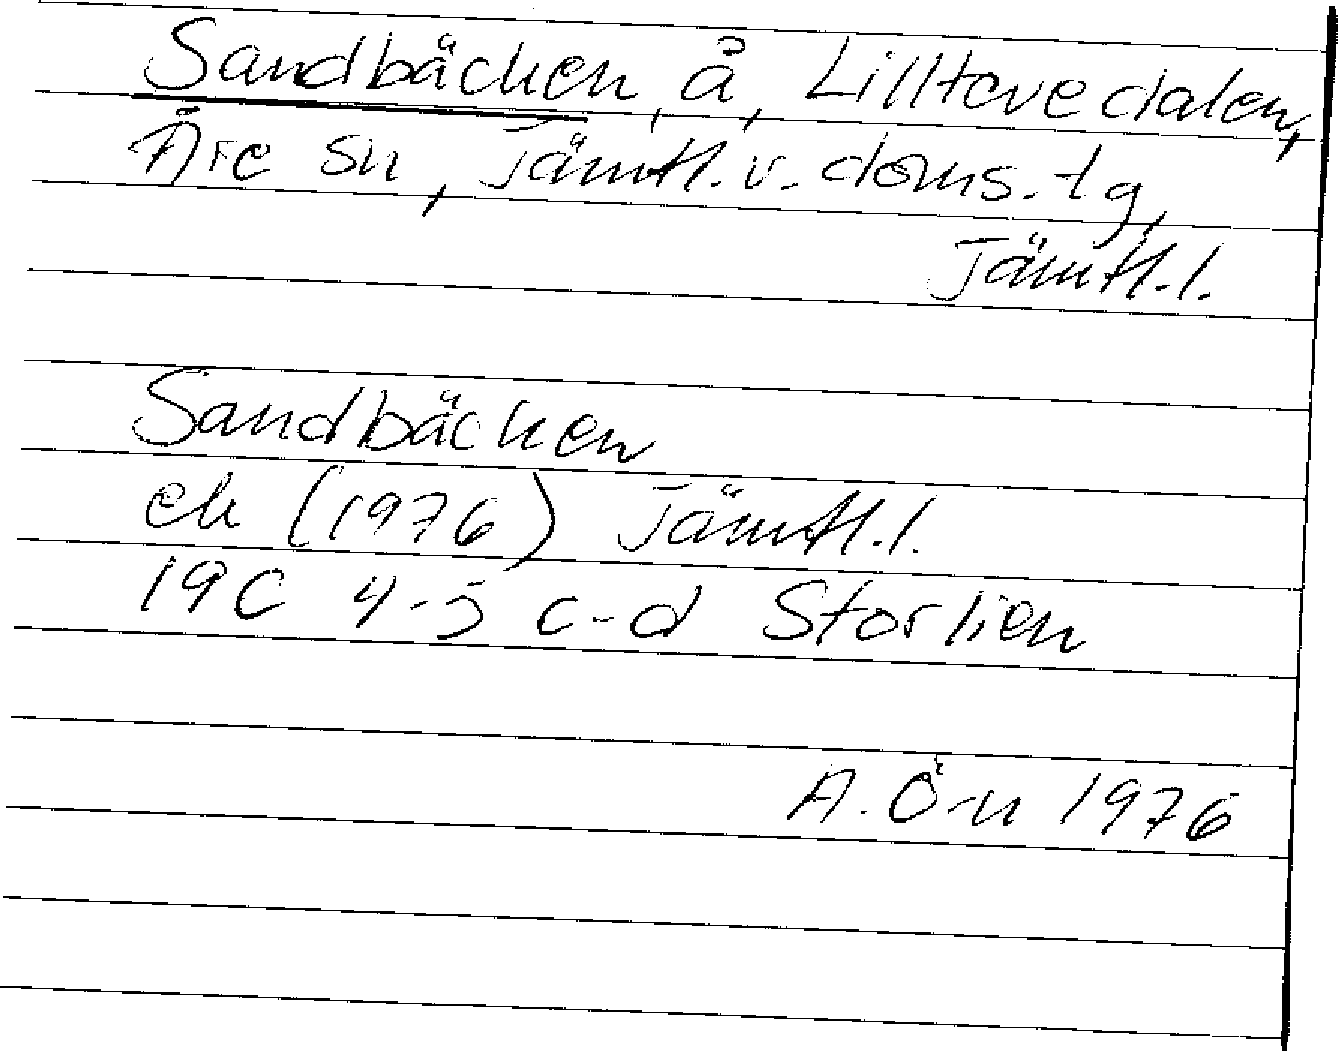 Sandbäcken, å, Lilltevedalen,
Åre sn, Jämtl. v. doms. tg,
Jämtl. l.
Sandbäcken
ek (1976) Jämtl. l.
19C 4-5 c-d Storlien
A. Ö-n 1976